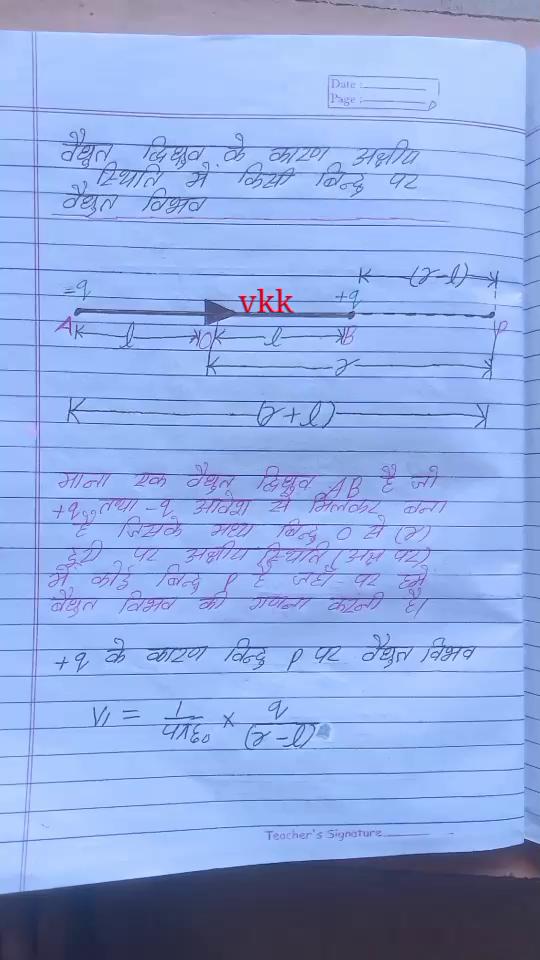 Date :
Page :
वैधुत द्विध्रुव के कारण अक्षीय
स्थिति में किसी बिन्दु पर
वैधुत विभव
(r-l)
-q
vkk
+q
A
l
O
l
B
P
r
(r+l)
माना एक वैधुत द्विध्रुव AB है जो
+q तथा -q आवेश से मिलकर बना
है जिसके मध्य बिन्दु O से (r)
दूरी पर अक्षीय स्थिति (अक्ष पर)
में कोई बिन्दु P है जहाँ पर हमें
वैधुत विभव की गणना करनी है।
+q के कारण बिन्दु P पर वैधुत विभव
V1 = 1/4πε0 × q/(r-l)
Teacher's Signature